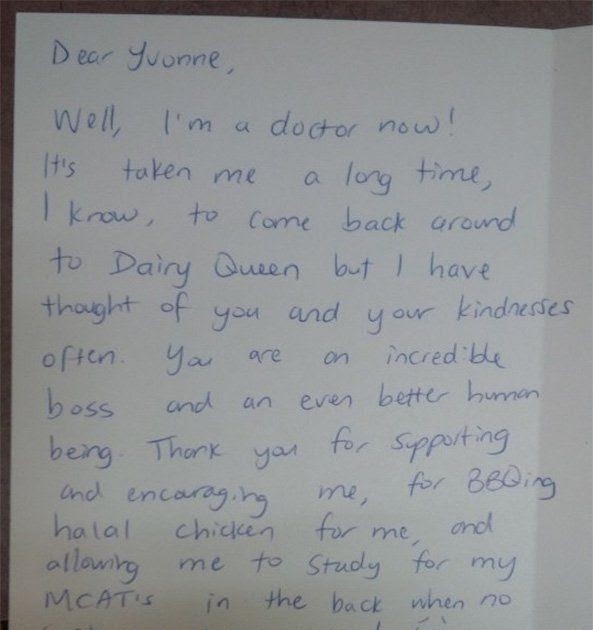 Dear Yvonne,
Well, I'm a doctor now!
It's taken me a long time,
I know, to come back around
to Dairy Queen but I have
thought of you and your kindnesses
often. You are an incredible
boss and an even better human
being. Thank you for supporting
and encouraging me, for BBQing
halal chicken for me, and
allowing me to study for my
MCAT's in the back when no